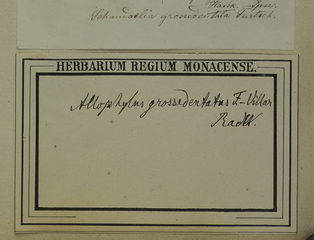 Schmidelia grossedentata Turtsch.
HERBARIUM REGIUM MONACENSE.
Allophylus grossedentatus F-Villar
Radlk.